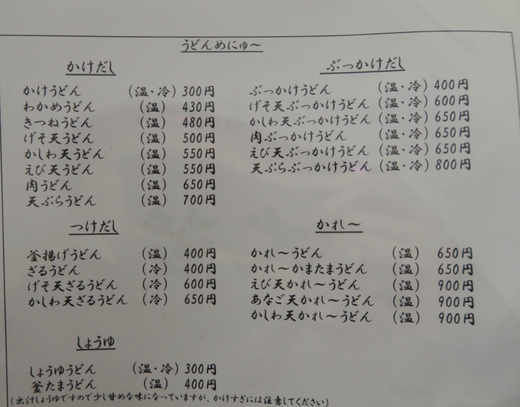 うどんめにゅ〜
かけだし
かけうどん (温・冷) 300円
わかめうどん (温) 430円
きつねうどん (温) 480円
げそ天うどん (温) 500円
かしわ天うどん (温) 550円
えび天うどん (温) 550円
肉うどん (温) 650円
天ぷらうどん (温) 700円
ぶっかけだし
ぶっかけうどん (温・冷) 400円
げそ天ぶっかけうどん (温・冷) 600円
かしわ天ぶっかけうどん (温・冷) 650円
肉ぶっかけうどん (温・冷) 650円
えび天ぶっかけうどん (温・冷) 650円
天ぷらぶっかけうどん (温・冷) 800円
つけだし
釜揚げうどん (温) 400円
ざるうどん (冷) 400円
げそ天ざるうどん (冷) 600円
かしわ天ざるうどん (冷) 650円
かれ〜
かれ〜うどん (温) 650円
かれ〜かまたまうどん (温) 650円
えび天かれ〜うどん (温) 900円
あなご天かれ〜うどん (温) 900円
かしわ天かれ〜うどん (温) 900円
しょうゆ
しょうゆうどん (温・冷) 300円
釜たまうどん (温) 400円
(出汁しょうゆですので少し甘めな味になっていますが、かけすぎには注意してください)